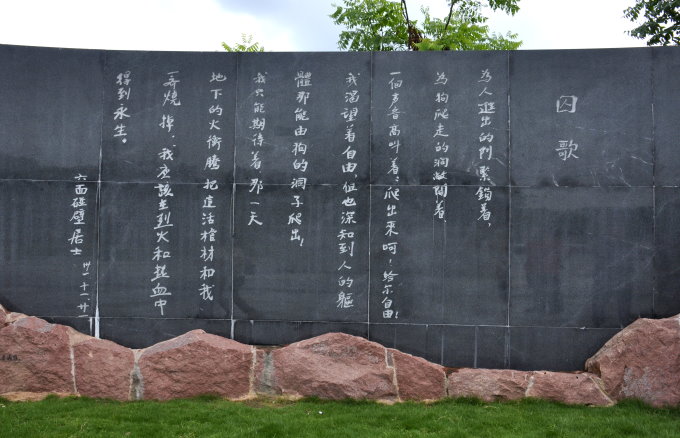 囚歌
為人進出的门緊鎖着,
為狗爬走的洞敞開着,
一個声音高叫着:爬出來呵!给尔自由!
我渴望着自由,但也深知到人的軀
體那能由狗的洞子爬出!
我只能期待着,那一天
地下的火衝腾,把這活棺材和我
一齐燒掉,我应該在烈火和热血中
得到永生。
六面碰壁居士
卅一.十一.廿一